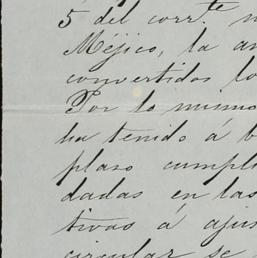 5 del corr.te
Méjico, la
convertidos
Por lo mismo
ha tenido á
plaso
dadas en las
tivas á
circular se